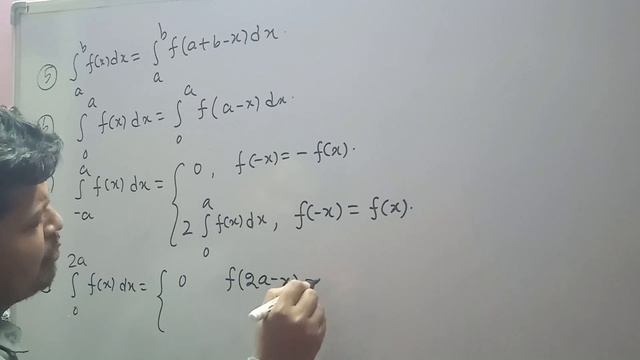 ⑤ ∫_a^b f(x)dx = ∫_a^b f(a+b-x)dx.
∫_0^a f(x)dx = ∫_0^a f(a-x)dx.
∫_{-a}^a f(x)dx = { 0, f(-x) = -f(x).
2∫_0^a f(x)dx, f(-x) = f(x).
∫_0^{2a} f(x)dx = { 0 f(2a-x)